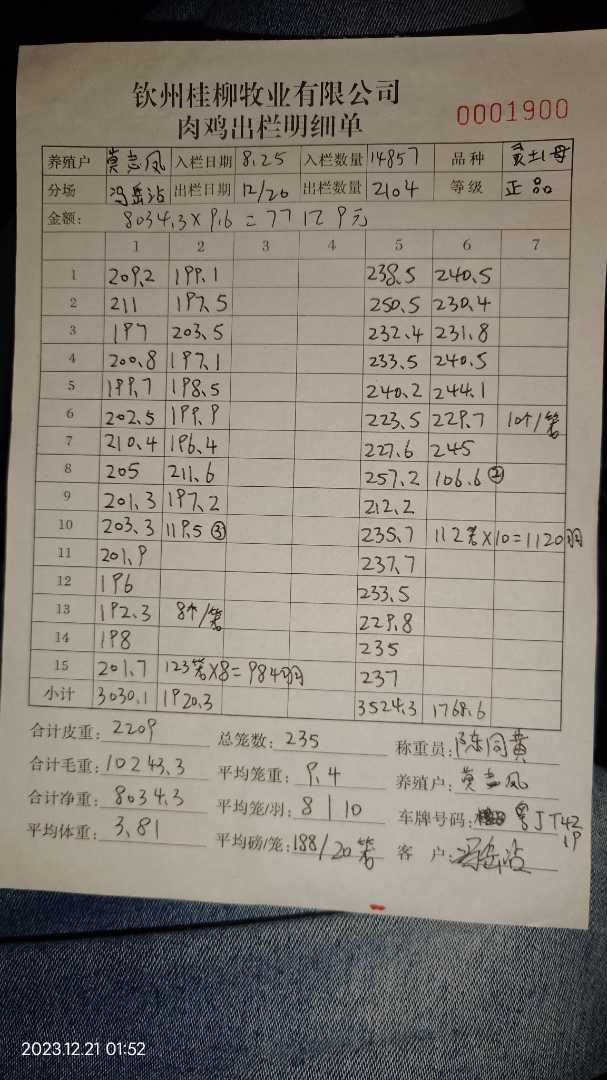 钦州桂柳牧业有限公司
肉鸡出栏明细单
0001900
养殖户 莫志凤 入栏日期 8.25 入栏数量 14857 品种 黄土1母
分场 冯岳沾 出栏日期 12/20 出栏数量 2104 等级 正品
金额: 8034.3×9.6=77129元
1 2 3 4 5 6 7
1 209.2 199.1 238.5 240.5
2 211 197.5 250.5 230.4
3 197 203.5 232.4 231.8
4 200.8 197.1 233.5 240.5
5 199.7 198.5 240.2 244.1
6 202.5 199.9 223.5 229.7 10个/笼
7 210.4 196.4 227.6 245
8 205 211.6 257.2 106.6②
9 201.3 197.2 212.2
10 203.3 119.5③ 235.7 112笼×10=1120羽
11 201.9 237.7
12 196 233.5
13 192.3 8个/笼 229.8
14 198 235
15 201.7 123笼×8=984羽 237
小计 3030.1 1920.3 3524.3 1768.6
合计皮重: 2209 总笼数: 235 称重员: 陈同黄
合计毛重: 10243.3 平均笼重: 9.4 养殖户: 莫志凤
合计净重: 8034.3 平均笼/羽: 8|10 车牌号码: 粤JT42
19
平均体重: 3.81 平均磅/笼: 188/20笼 客户: 冯岳沾
2023.12.21 01:52